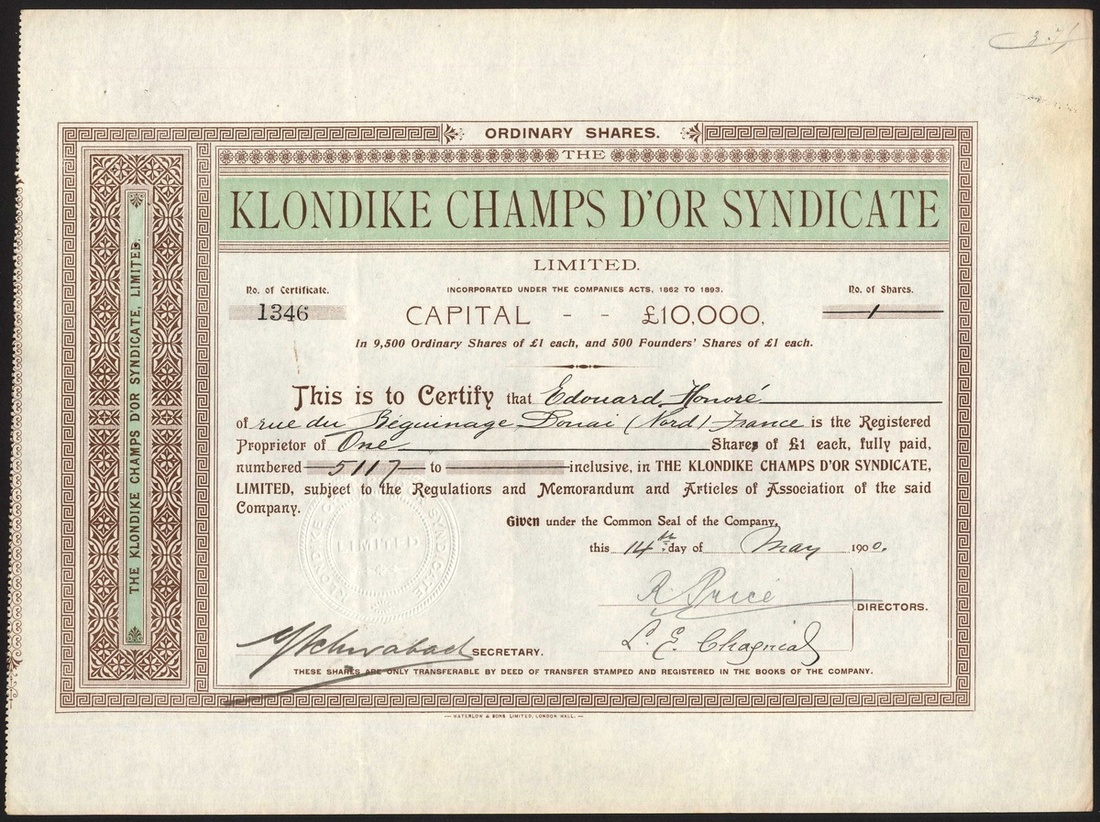 ORDINARY SHARES.
THE
KLONDIKE CHAMPS D'OR SYNDICATE
LIMITED.
No. of Certificate.
INCORPORATED UNDER THE COMPANIES ACTS, 1862 TO 1893.
No. of Shares.
1346
CAPITAL - - £10,000,
1
In 9,500 Ordinary Shares of £1 each, and 500 Founders' Shares of £1 each.
This is to Certify that Edouard Honoré
of rue du Béguinage Douai (Nord) France is the Registered
Proprietor of One Shares of £1 each, fully paid,
numbered 5117 to inclusive, in THE KLONDIKE CHAMPS D'OR SYNDICATE,
LIMITED, subject to the Regulations and Memorandum and Articles of Association of the said
Company.
Given under the Common Seal of the Company,
this 14th day of May 1900.
R. Price
DIRECTORS.
L. E.
Schwabach SECRETARY.
THESE SHARES ARE ONLY TRANSFERABLE BY DEED OF TRANSFER STAMPED AND REGISTERED IN THE BOOKS OF THE COMPANY.
WATERLOW & SONS LIMITED, LONDON WALL.
THE KLONDIKE CHAMPS D'OR SYNDICATE, LIMITED.
KLONDIKE CHAMPS D'OR SYNDICATE
LIMITED